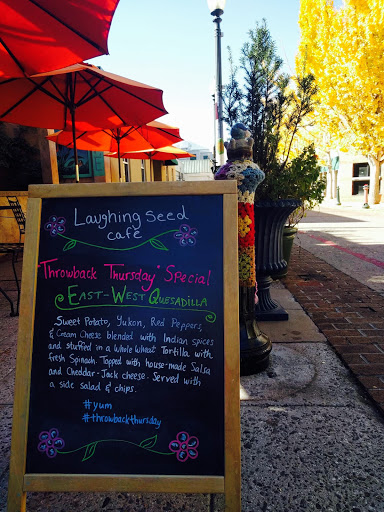 Laughing Seed
café
"Throwback Thursday" Special
East-West Quesadilla
Sweet Potato, Yukon, Red Peppers,
& Cream Cheese blended with Indian spices
and stuffed in a Whole Wheat Tortilla with
fresh Spinach. Topped with house-made Salsa
and Cheddar-Jack cheese. Served with
a side salad & chips.
#yum
#throwbackthursday